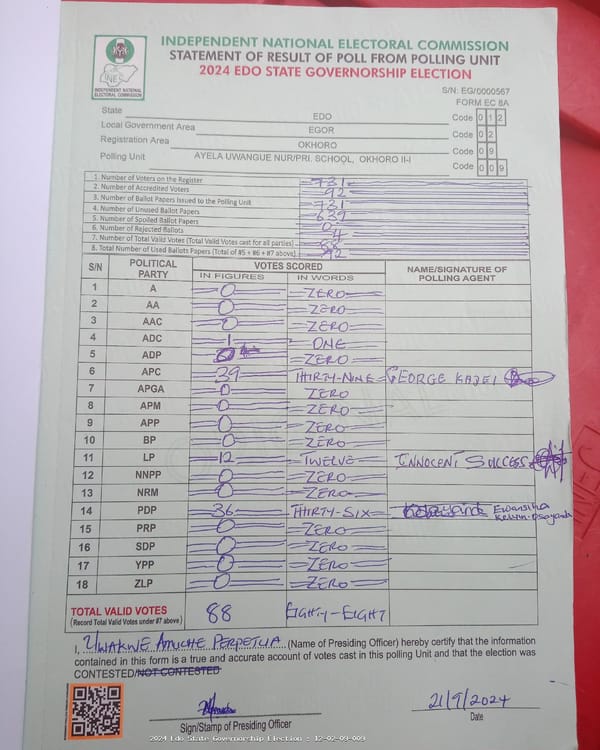 INDEPENDENT NATIONAL ELECTORAL COMMISSION
STATEMENT OF RESULT OF POLL FROM POLLING UNIT
2024 EDO STATE GOVERNORSHIP ELECTION
INEC
INDEPENDENT NATIONAL
ELECTORAL COMMISSION
S/N: EG/0000567
FORM EC 8A
State EDO Code 0 1 2
Local Government Area EGOR Code 0 2
Registration Area OKHORO Code 0 9
Polling Unit AYELA UWANGUE NUR/PRI. SCHOOL, OKHORO II-I Code 0 0 9
1. Number of Voters on the Register 731
2. Number of Accredited Voters 92
3. Number of Ballot Papers Issued to the Polling Unit 731
4. Number of Unused Ballot Papers 639
5. Number of Spoiled Ballot Papers 0
6. Number of Rejected Ballots 4
7. Number of Total Valid Votes (Total Valid Votes cast for all parties) 88
8. Total Number of Used Ballots Papers (Total of #5 + #6 + #7 above) 92
S/N POLITICAL PARTY VOTES SCORED NAME/SIGNATURE OF POLLING AGENT
IN FIGURES IN WORDS
1 A 0 ZERO
2 AA 0 ZERO
3 AAC 0 ZERO
4 ADC 1 ONE
5 ADP 0 ZERO
6 APC 39 THIRTY-NINE GEORGE KADEI
7 APGA 0 ZERO
8 APM 0 ZERO
9 APP 0 ZERO
10 BP 0 ZERO
11 LP 12 TWELVE INNOCENT SUCCESS
12 NNPP 0 ZERO
13 NRM 0 ZERO
14 PDP 36 THIRTY-SIX
15 PRP 0 ZERO
16 SDP 0 ZERO
17 YPP 0 ZERO
18 ZLP 0 ZERO
TOTAL VALID VOTES 88 EIGHTY-EIGHT
(Record Total Valid Votes under #7 above)
I, UWAKWE AMUCHE PERPETUA (Name of Presiding Officer) hereby certify that the information
contained in this form is a true and accurate account of votes cast in this polling Unit and that the election was
CONTESTED/NOT CONTESTED
21/9/2024
Sign/Stamp of Presiding Officer Date
2024 Edo State Governorship Election : 12-02-09-009